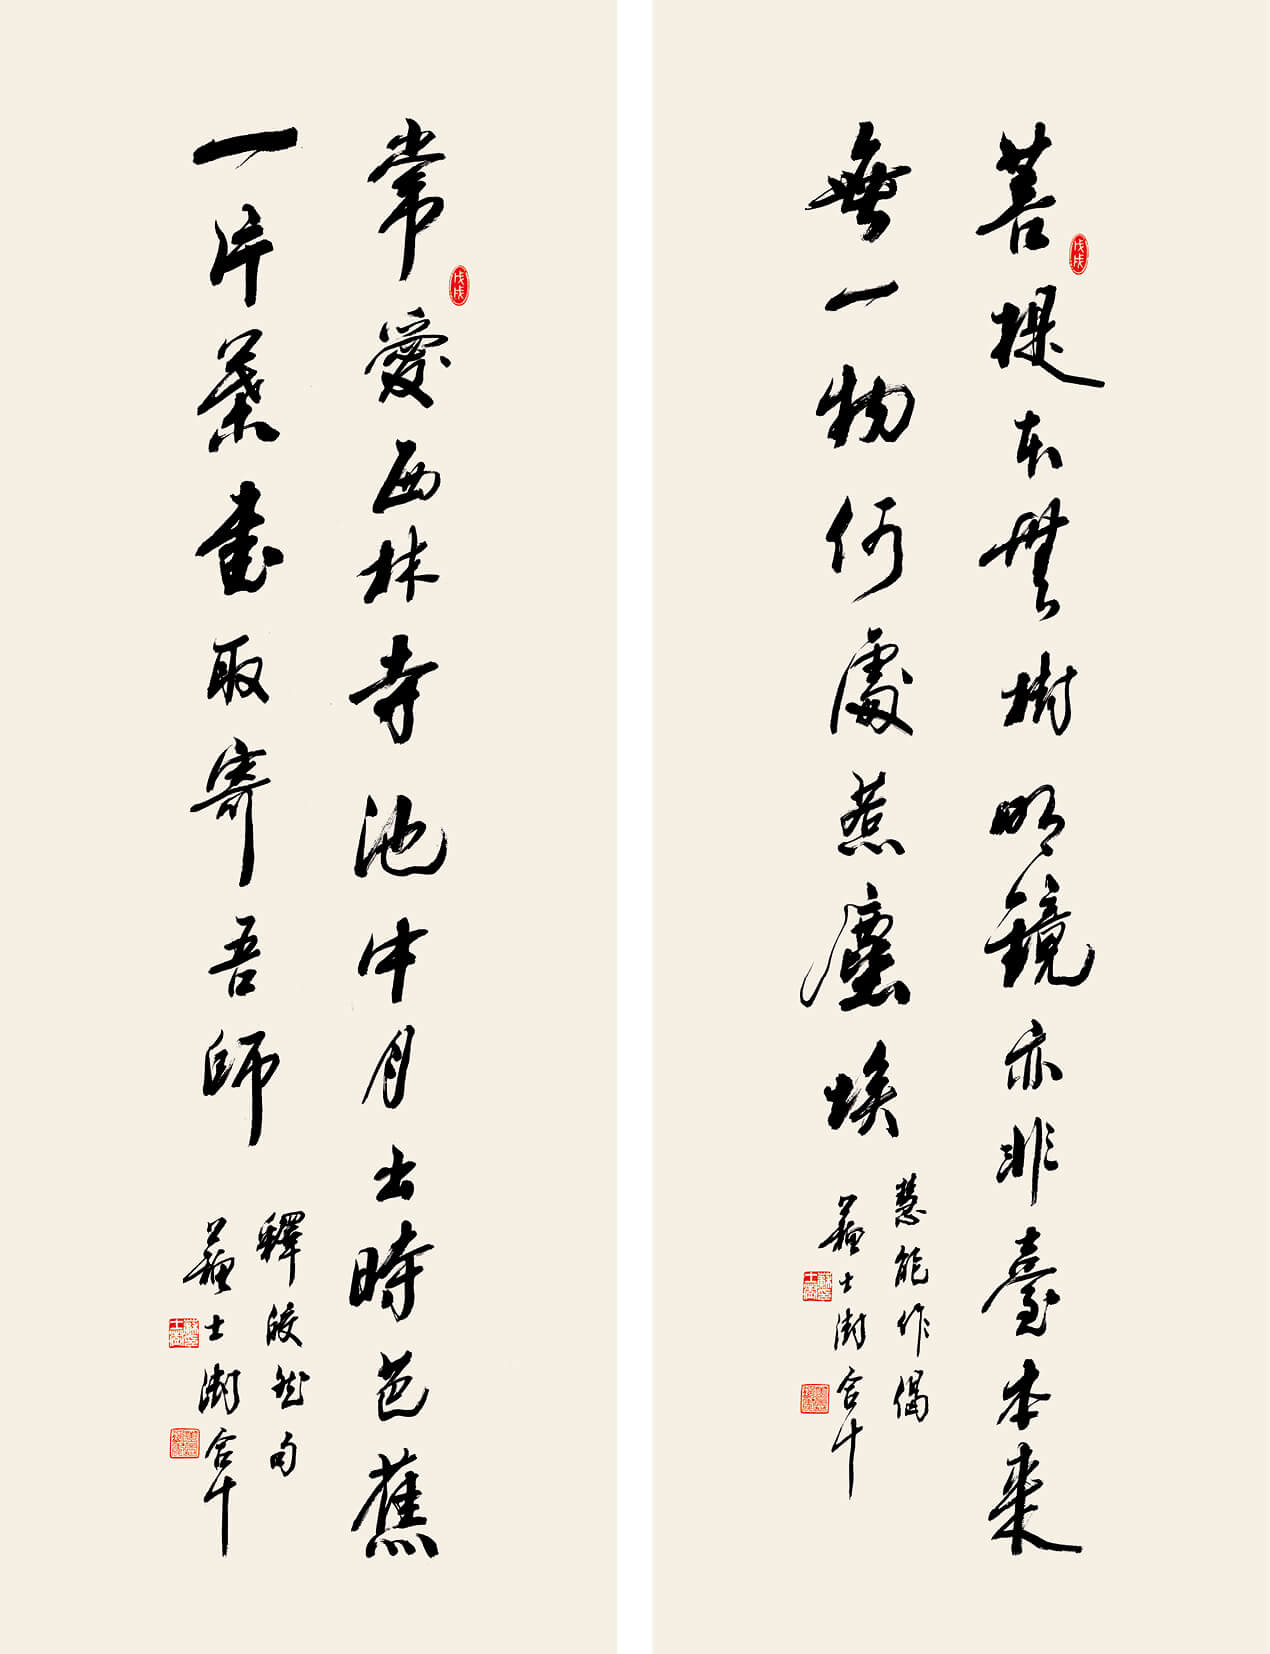 菩提本無樹明鏡亦非臺本來
戊戌
無一物何處惹塵埃
慧能作偈
蘇士澍合十
常愛西林寺池中月出時芭蕉
戊戌
一片葉書取寄吾師
釋皎然句
蘇士澍合十